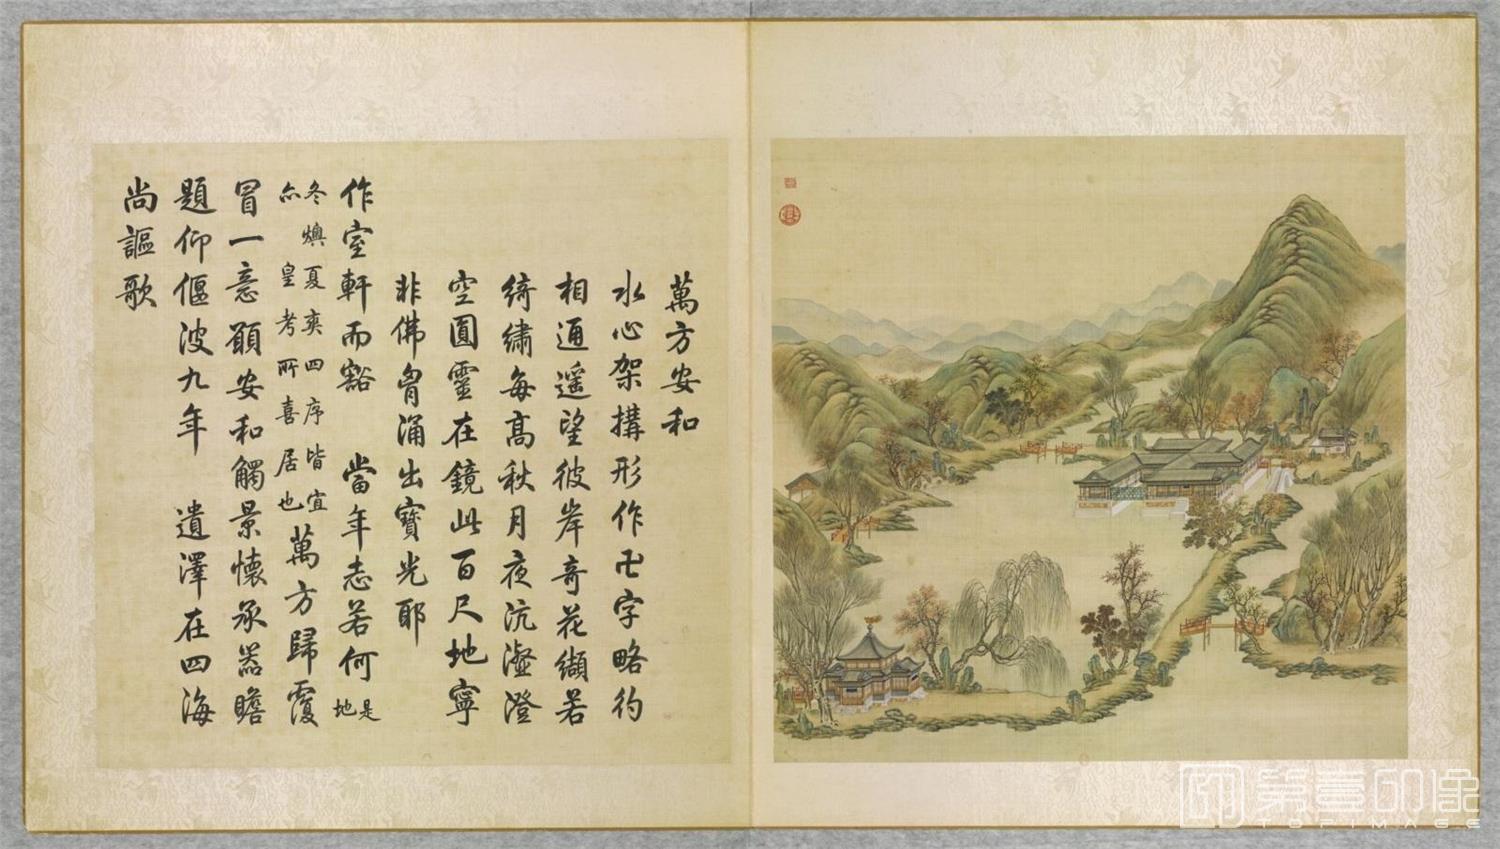 萬方安和
水心架搆形作卍字略彴
相通遥望彼岸奇花纈若
綺繡每高秋月夜沆瀣澄
空圓靈在鏡此百尺地寧
非佛胷涌出寶光耶
作室軒而豁 當年志若何 是地
冬燠夏爽四序皆宜
亦 皇考所喜居也
萬方歸覆
冒一意願安和觸景懷承器瞻
題仰偃波九年 遺澤在四海
尚謳歌
第壹印像
TOPIMAGE